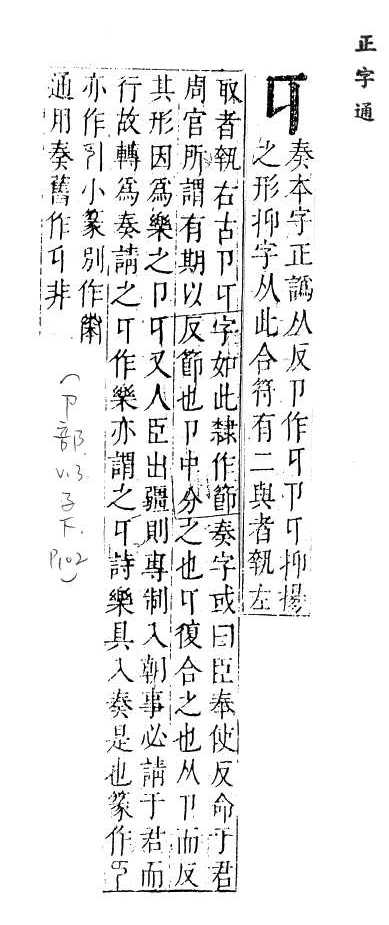 正字通
𠨎
奏本字正譌从反卪作𠨎卪𠨎抑揚
之形抑字从此合符有二與者執左
取者執右古卪𠨎字如此隸作節奏字或曰臣奉使反命于君
周官所謂有期以反節也卪中分之也𠨎復合之也从卪而反
其形因爲樂之卪𠨎又人臣出疆則專制入朝事必請于君而
行故轉爲奏請之𠨎作樂亦謂之𠨎詩樂具入奏是也篆作
亦作小篆別作
通用奏舊作𠨎非
(卩部.
V.3.
子
下.
P102)